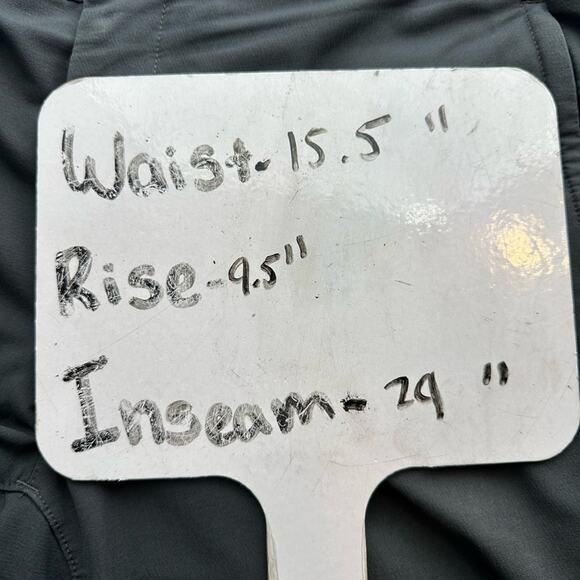 Waist-15.5"
Rise-9.5"
Inseam-29"